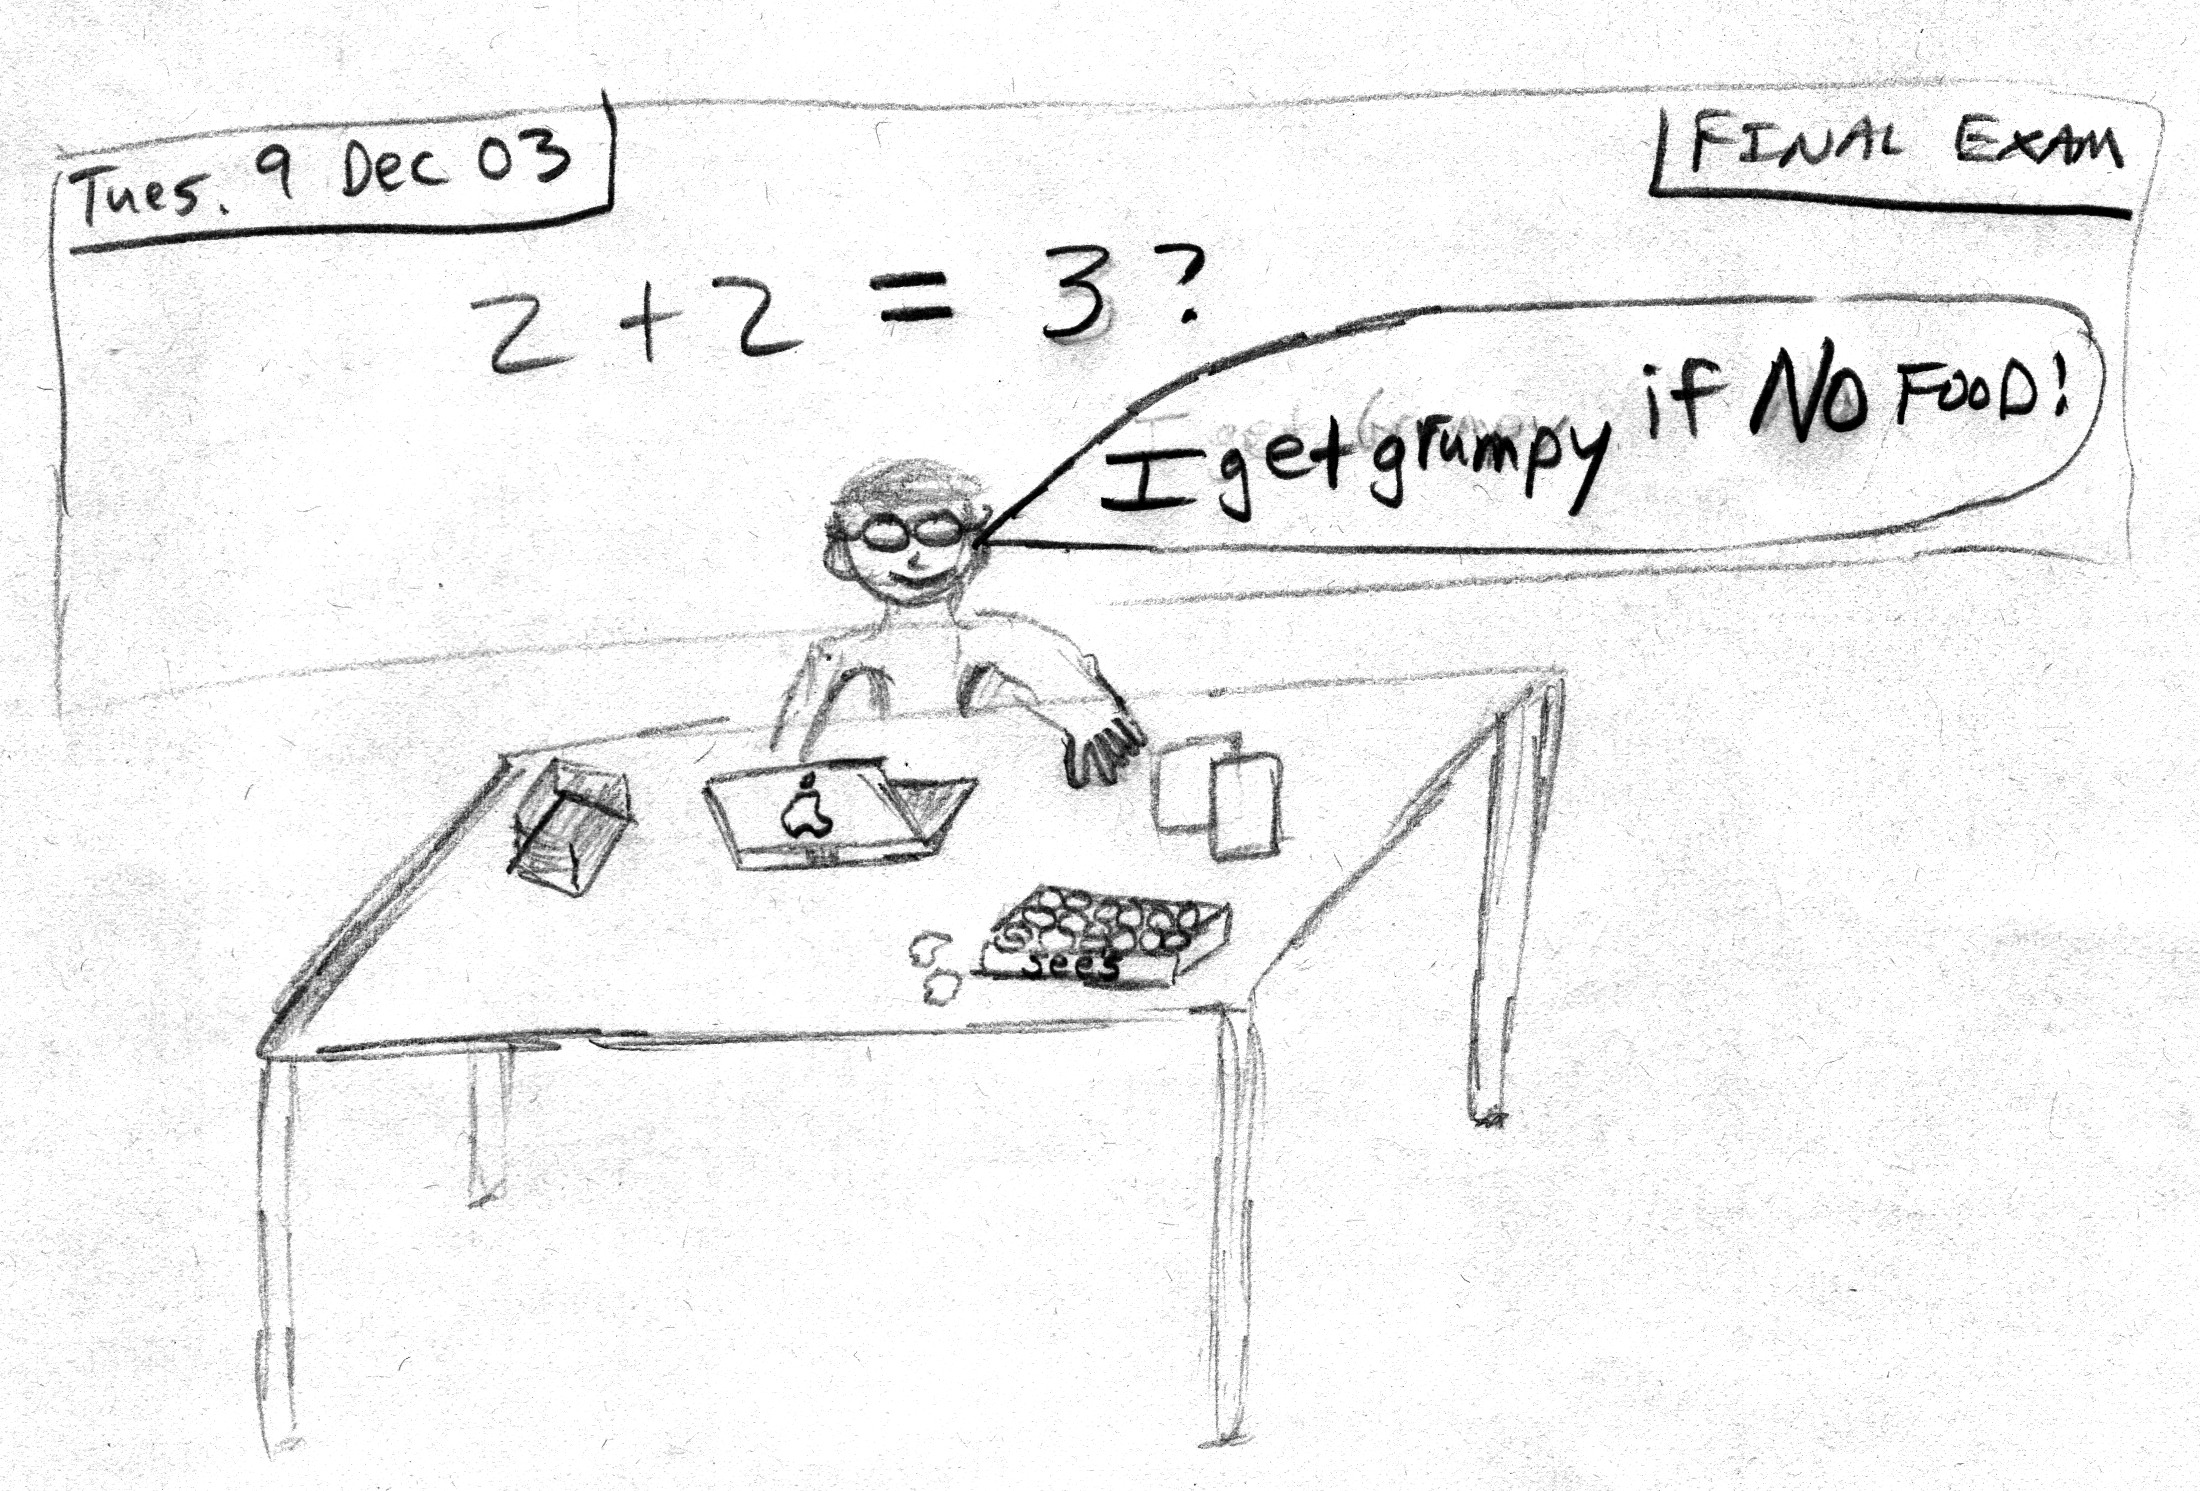 Tues. 9 Dec 03
FINAL EXAM
2 + 2 = 3?
I get grumpy if NO FOOD!
sees